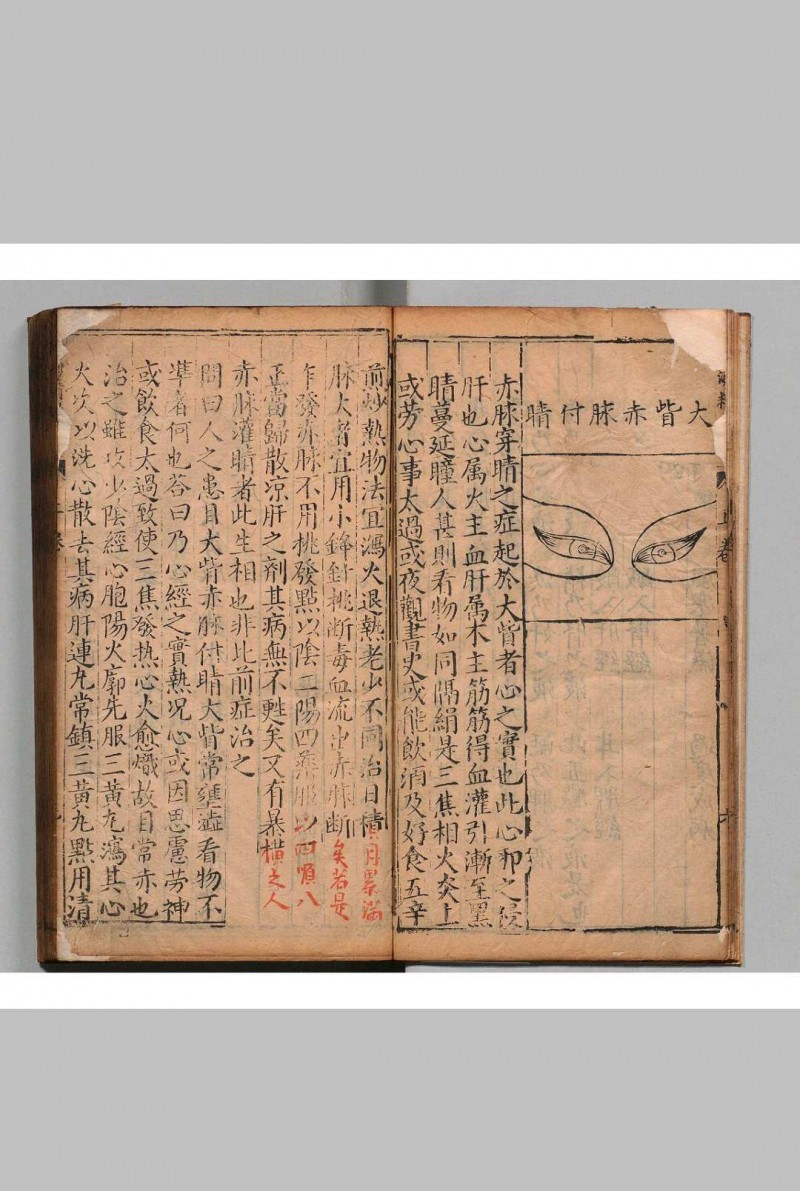 大眥赤脉付睛
赤脉穿睛之症起於大眥者心之實也此心邪之侵
肝也心属火主血肝属木主筋筋得血灌引漸至黑
睛蔓延瞳人甚則看物如同隔絹是三焦相火炎上
或劳心事太過或夜觀書史或能飲酒及好食五辛
煎炒熱物法宜瀉火退熱老少不同治日積月累滋
脉大者宜用小鋒針挑断毒血流出赤脉断矣若是
乍發赤脉不用挑發點以陰二陽四藥服以四順八
正當歸散凉肝之劑其病無不甦矣又有暴橫之人
赤脉灌睛者此生相也非比前症治之
問曰人之患目大眥赤脉付睛大眥常壅澁看物不
凖者何也荅曰乃心經之實熱况心或因思慮劳神
或飲食太過致使三焦發热心火愈熾故目常赤也
治之雖攻少陰經心胞陽火廓先服三黄丸瀉其心
火次以洗心散去其病肝連丸常鎮三黄丸點用清